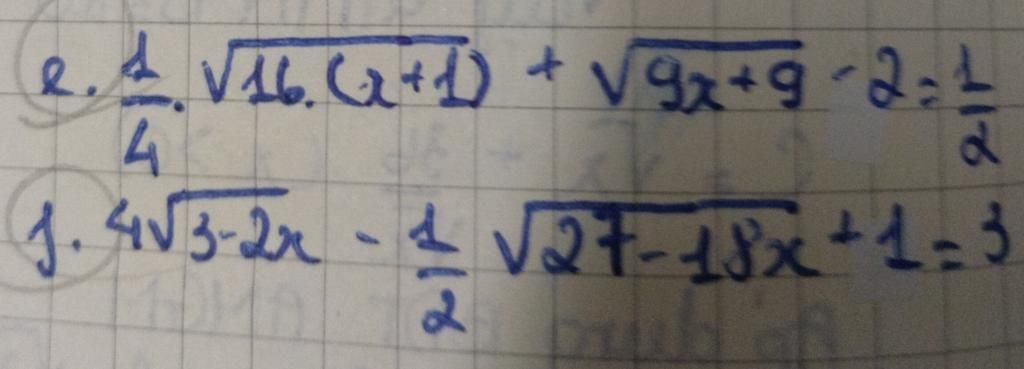 e. 1/4 . √16.(x+1) + √9x+9 - 2 = 1/2
f. 4√3-2x - 1/2 √27-18x + 1 = 3